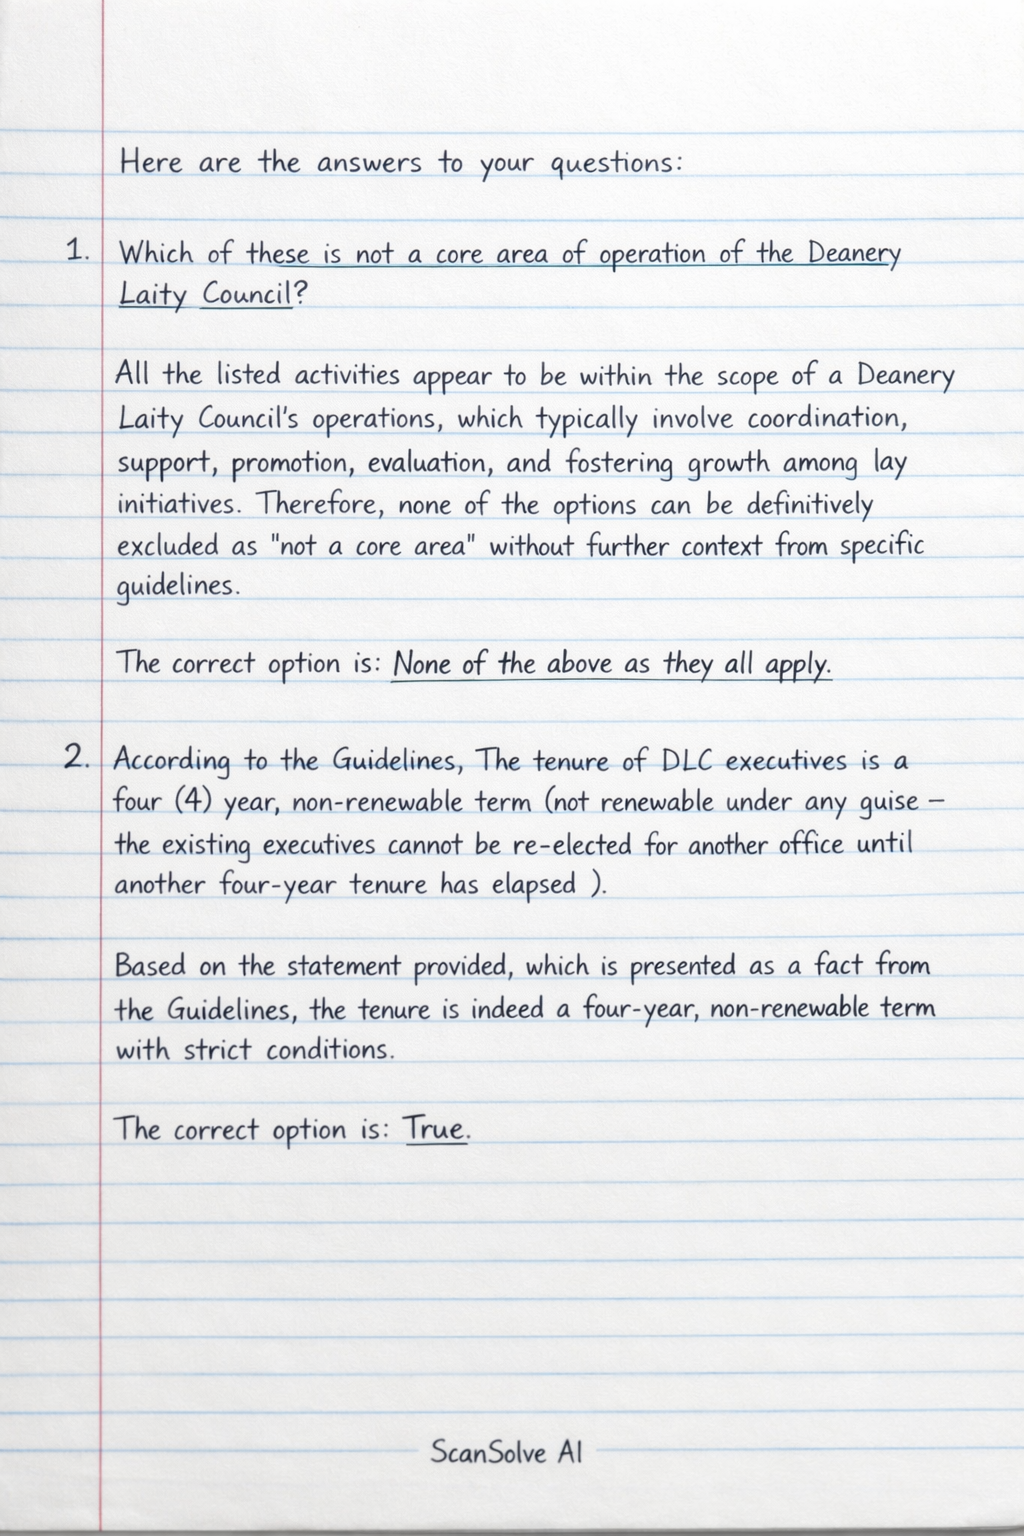 Here are the answers to your questions:
1. Which of these is not a core area of operation of the Deanery
Laity Council?
All the listed activities appear to be within the scope of a Deanery
Laity Council's operations, which typically involve coordination,
support, promotion, evaluation, and fostering growth among lay
initiatives. Therefore, none of the options can be definitively
excluded as "not a core area" without further context from specific
guidelines.
The correct option is: None of the above as they all apply.
2. According to the Guidelines, The tenure of DLC executives is a
four (4) year, non-renewable term (not renewable under any guise –
the existing executives cannot be re-elected for another office until
another four-year tenure has elapsed ).
Based on the statement provided, which is presented as a fact from
the Guidelines, the tenure is indeed a four-year, non-renewable term
with strict conditions.
The correct option is: True.
ScanSolve AI